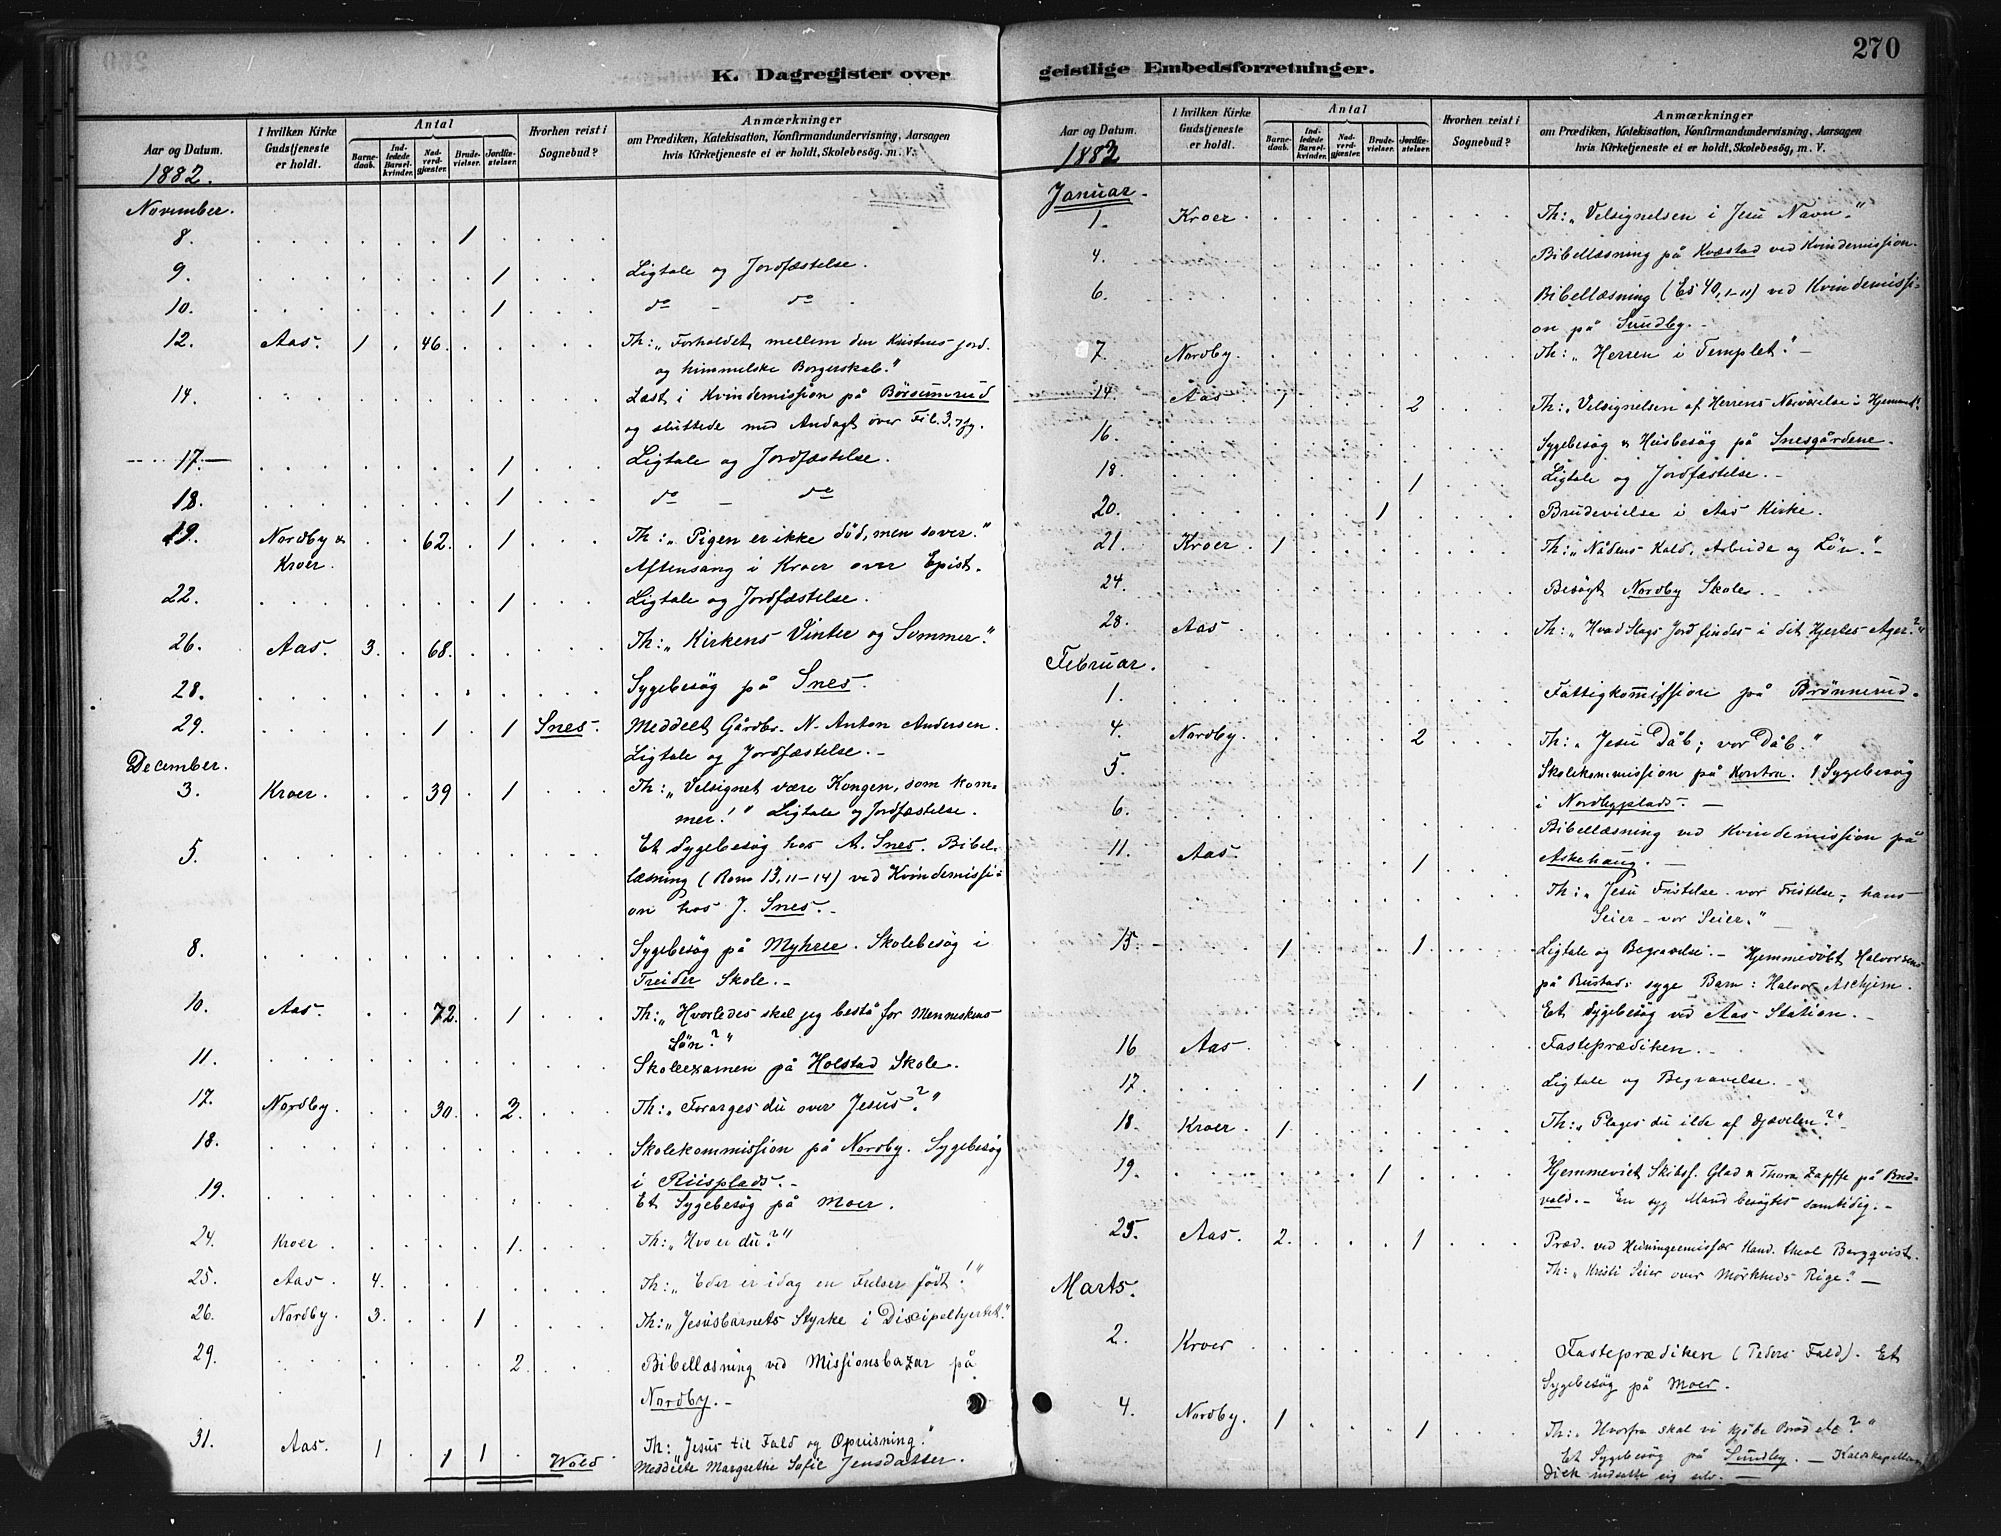 K. Dagregister over
Aar og Datum.
I hvilken Kirke Gudstjeneste er holdt.
Antal
Barnedaab.
Indledede Barselkvinder.
Nadverdgjester.
Brudevielser.
Jordfæstelser.
Hvorhen reist i Sognebud?
Anmærkninger
om Prædiken, Katekisation, Konfirmandundervisning, Aarsagen
hvis Kirketjeneste ei er holdt, Skolebesøg. m. V.
1882.
November.
8. 1
9. 1 Ligtale og Jordfæstelse.
10. 1 do - do
12. Aas. 1 46. Th: „Forholdet mellem den Kristnes jord.
og himmelske Borgerskab."
14. Læst i Kvindemission på Börsumrud
og sluttede med Andagt over Fil. 3,
17. 1 Ligtale og Jordfæstelse.
18. 1 do - do
19. Nordby & 62. 1 Th: „Pigen er ikke död, men sover."
Kroer. Aftensang i Kroer over Epist.
22. 1 Ligtale og Jordfæstelse.
26. Aas. 3. 68. Th: „Kirkens Vinter og Sommer."
28. Sygebesøg på Snes.
29. 1 1 Snes. Meddelt Gårdbr. N. Anton Andersen.
Ligtale og Jordfæstelse.-
December.
3. Kroer. 39 1 Th: „Velsignet være Kongen, som kom-
mer!" Ligtale og Jordfæstelse.
5. Et Sygebesøg hos A. Snes. Bibel-
læsning (Rom 13,11-14) ved Kvindemissi-
on hos J. Snes.-
8. Sygebesøg på Myhrer. Skolebesøg i
Treider Skole.-
10. Aas. 72. 1 Th: „Hvorledes skal jeg bestå for Menneskens
Sön?"
11. Skoleexamen på Holstad Skole.
17. Nordby. 30. 2. Th: „Forarges du over Jesus?"
18. Skolekommission på Nordby. Sygebesøg
i Riisplads.-
19. Et Sygebesøg på Moer.
24. Kroer. 1. Th: „Hvo er du?"
25. Aas. 4. Th: „Eder er idag en Frelser født!"
26. Nordby. 3. 1 Th: „Jesusbarnets Styrke i Discipelhjertet."
29. 2. Bibellæsning ved Missionsbazar på
Nordby.-
31. Aas. 1 1 1 Wold Th: Jesus til Fald og Opreisning."
Meddelte Margrethe Sofie Jensdatter.
geistlige Embedsforretninger.
270
Aar og Datum.
I hvilken Kirke Gudstjeneste er holdt.
Antal
Barnedaab.
Indledede Barselkvinder.
Nadverdgjester.
Brudevielser.
Jordfæstelser.
Hvorhen reist i Sognebud?
Anmærkninger
om Prædiken, Katekisation, Konfirmandundervisning, Aarsagen
hvis Kirketjeneste ei er holdt, Skolebesøg, m. V.
1883
Januar.
1. Kroer. Th: „Velsignelsen i Jesu Navn."
4. Bibellæsning på Kvæstad ved Kvindemission.
6. Bibellæsning (Es 40,1-11) ved Kvindemissi-
on på Sundby.-
7. Nordby. Th: „Herren i Templet."-
14. Aas 1 2 Th: „Velsignelsen af Herrens Nærværelse i Hjemmet".
16. Sygebesøg & Husbesøg på Snesgårdene.
18. 1 Ligtale og Jordfæstelse.-
20. 1 Brudevielse i Aas Kirke.
21. Kroer. 1 Th: „Nådens Kald, Arbeide og Løn."-
24. Besøgt Nordby Skole.
28. Aas. Th: „Hvad Slags Jord findes i dit Hjertes Ager?"
Februar.
1. Fattigkommission på Brönnerud.
4. Nordby. 2 Th: „Jesu Dåb; vor Dåb."
5. Skolekommission på Kontra. 1 Sygebesøg
i Nordbyplads.-
6. Bibellæsning ved Kvindemission på
Askehaug.-
11. Aas. 1 Th: „Jesu Fristelse - vor Fristelse, hans
Seier - vor Seier."
15. 1 1 Ligtale og Begravelse.- Hjemmedöbt Halvorsens
på Rustad: syge Barn: Halvor Aschjem.
Et Sygebesøg ved Aas Station.-
16 Aas. Fasteprædiken.-
17. 1 Ligtale og Begravelse.-
18. Kroer. 1 Th: „Plages du ilde af Djævelen?"
19. 1 Hjemmeviet Skibsf. Glad & Thora Zapffe på Bud-
vald.- En syg Mand besøgtes samtidig.-
25. Aas. 2. 1 Præd. ved Hedningemissær Kand. theol Bergqvist.
Th: „Kristi Seier over Mörkheds Rige."-
Marts.
2. Kroer Fasteprædiken (Peders Fald). Et
Sygebesøg på Moer.
4. Nordby. 1 1 Th: „Hvorfra skal vi kjøbe Brød etc?"
Et Sygebesøg på Sundby.- Kaldskapellan
Dick indsatte sig selv.-